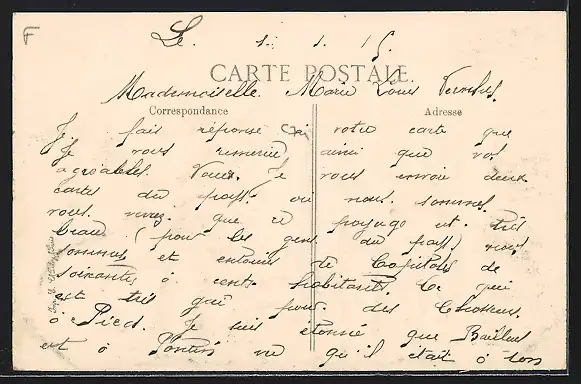 F
Le. 1. 1. 15.
CARTE POSTALE.
Mademoiselle. Marie Louis
Correspondance
Adresse
Je fais réponse à votre carte que
Je vous remercie ainsi que vos
agréables. Je vous envoie deux
cartes du pays. où nous. sommes.
vous. verrez. que ce paysage est très
beau (pour les gens du pays) nous
sommes et entouré de Capitale de
soixantes à cents habitants. Ce qui
est très gai pour des Chasseurs
à Pied. Je suis étonnée que
est à vu qu'il était à